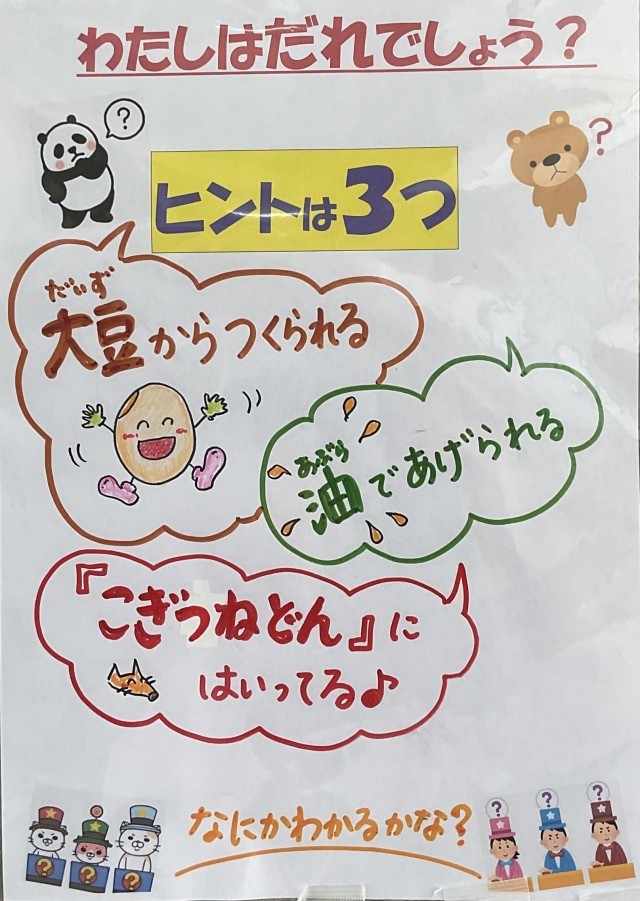 わたしはだれでしょう？
?
?
ヒントは3つ
だいず
大豆からつくられる
あぶら
油であげられる
『こぎつねどん』に
はいってる♪
なにかわかるかな？
? ? ?
? ? ?